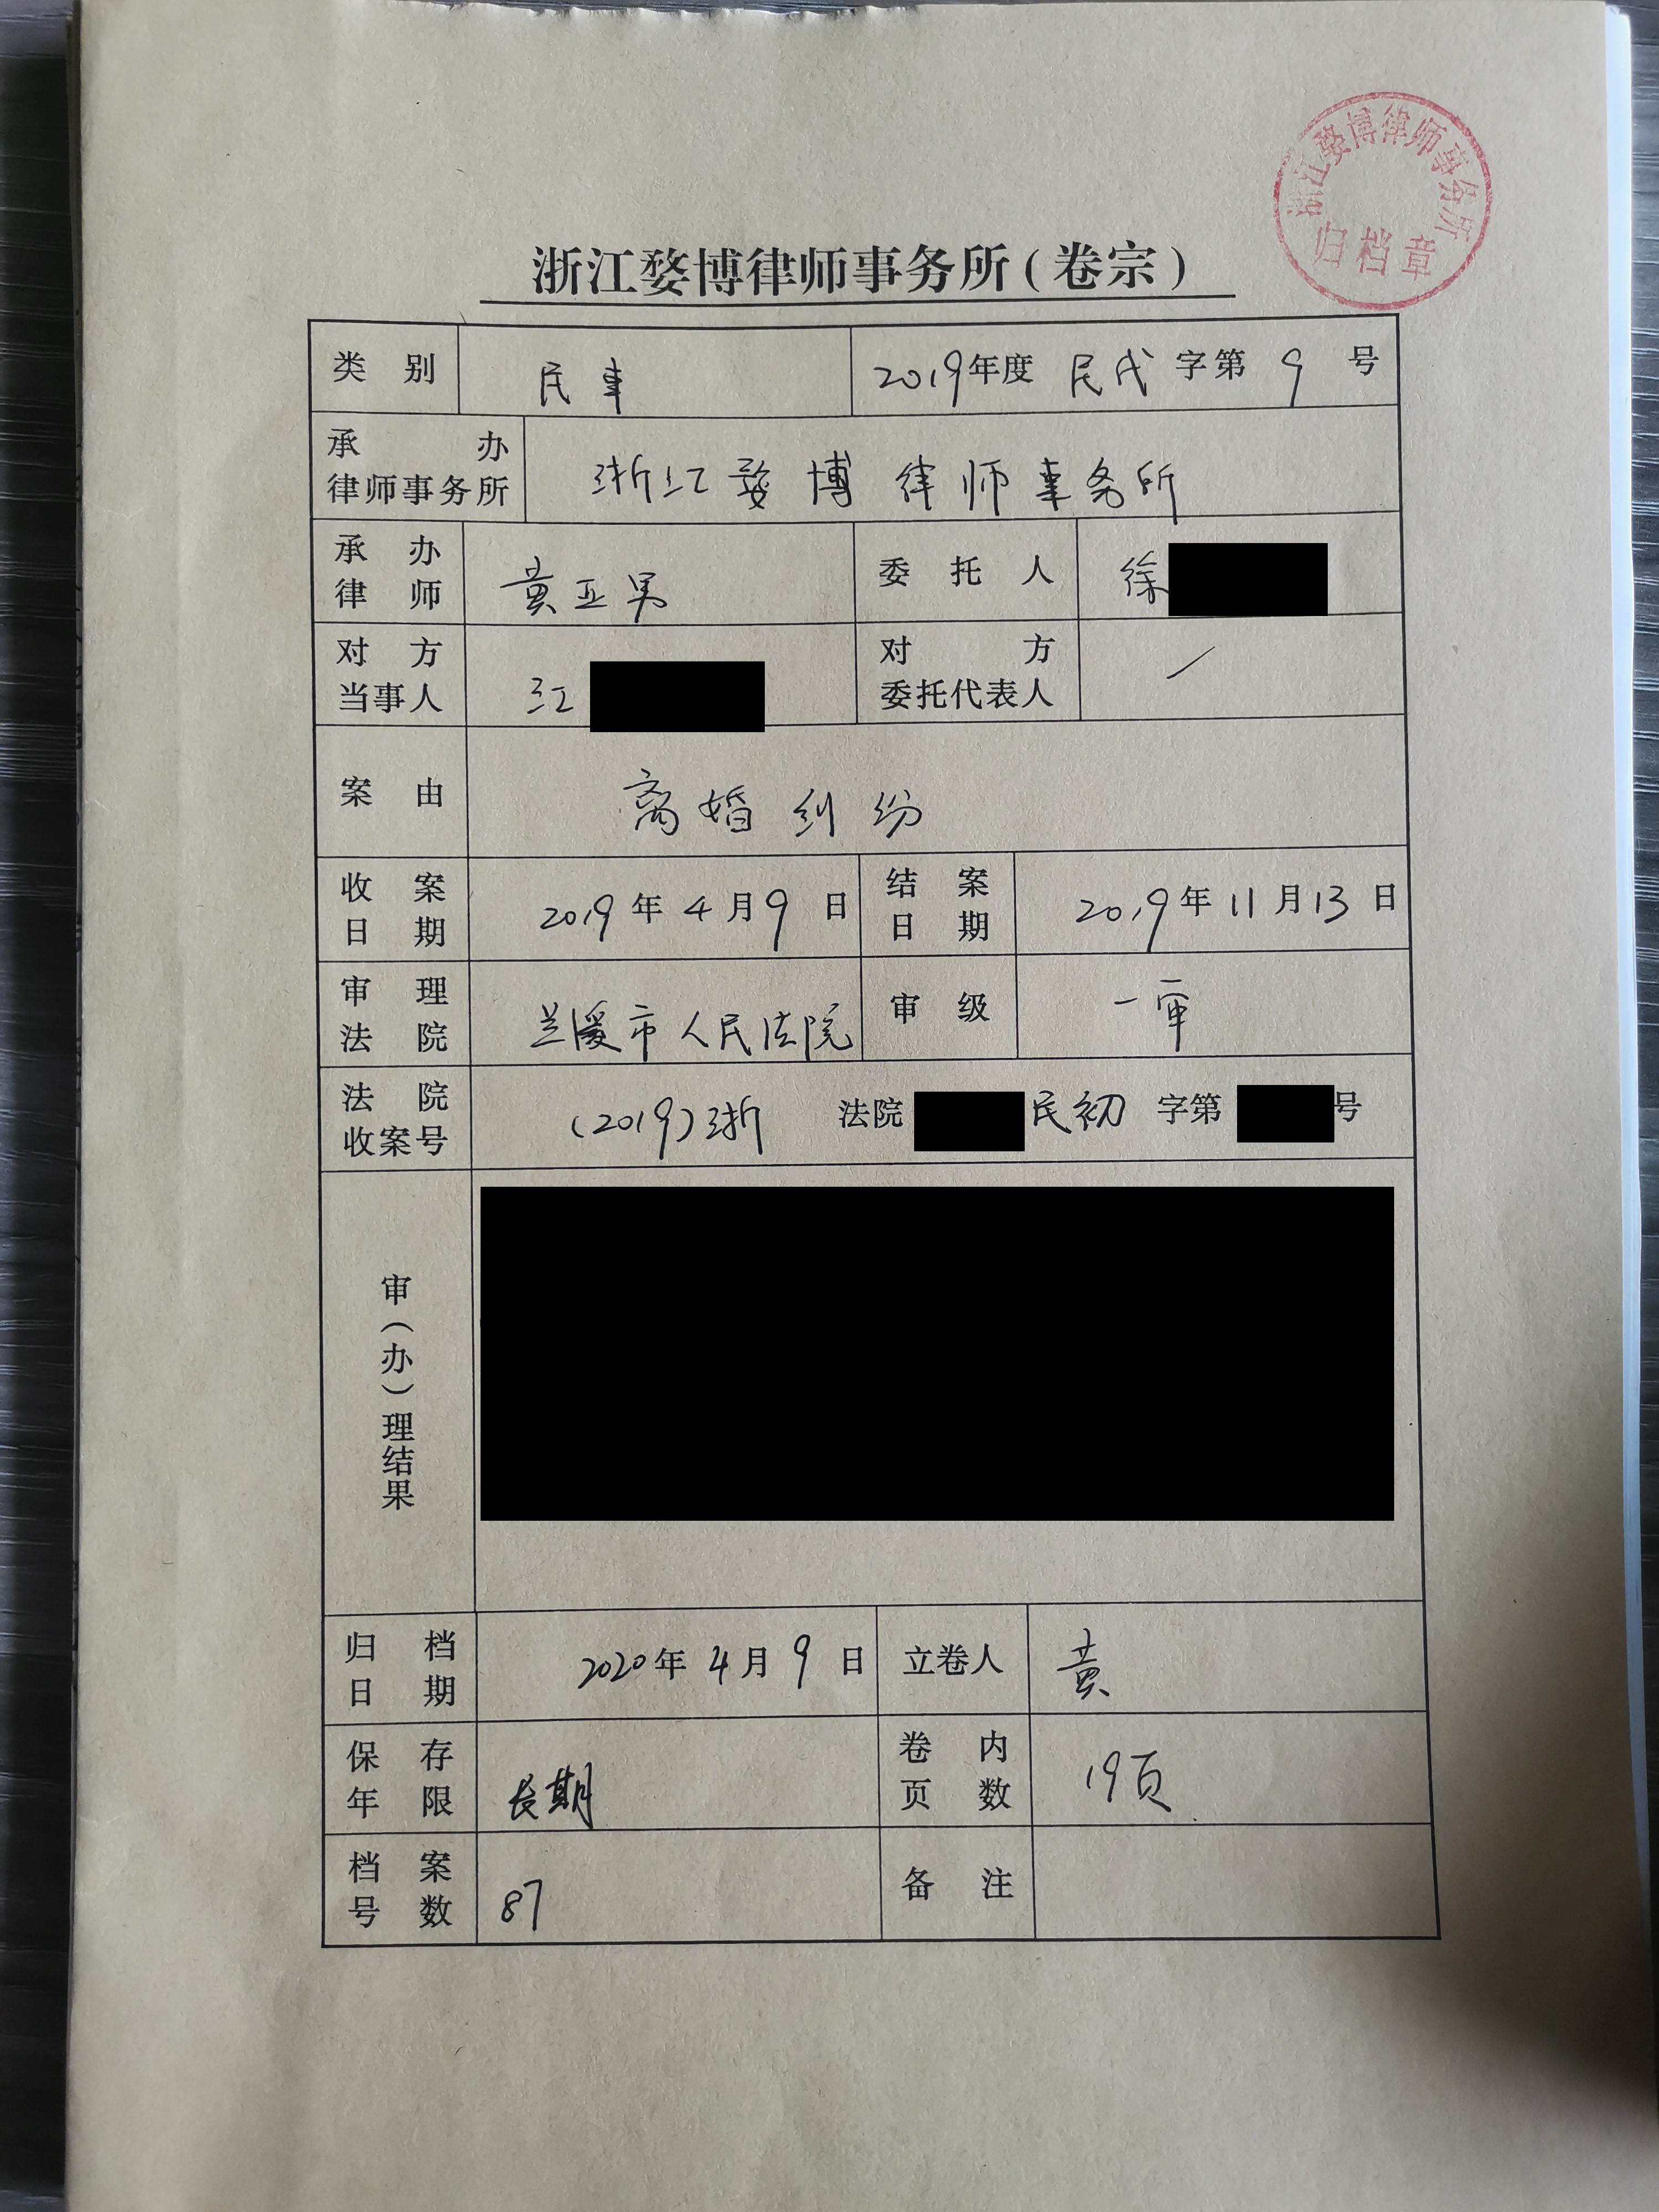 浙江婺博律师事务所
归档章
浙江婺博律师事务所(卷宗)
类别 民事 2019年度 民代 字第 9 号
承办律师事务所 浙江婺博律师事务所
承办律师 黄亚男 委托人 徐
对方当事人 江 对方委托代表人 /
案由 离婚纠纷
收案日期 2019年4月9日 结案日期 2019年11月13日
审理法院 兰溪市人民法院 审级 一审
法院收案号 (2019)浙 法院 民初 字第 号
审(办)理结果
归档日期 2020年4月9日 立卷人 黄
保存年限 长期 卷内页数 19页
档案号数 87 备注